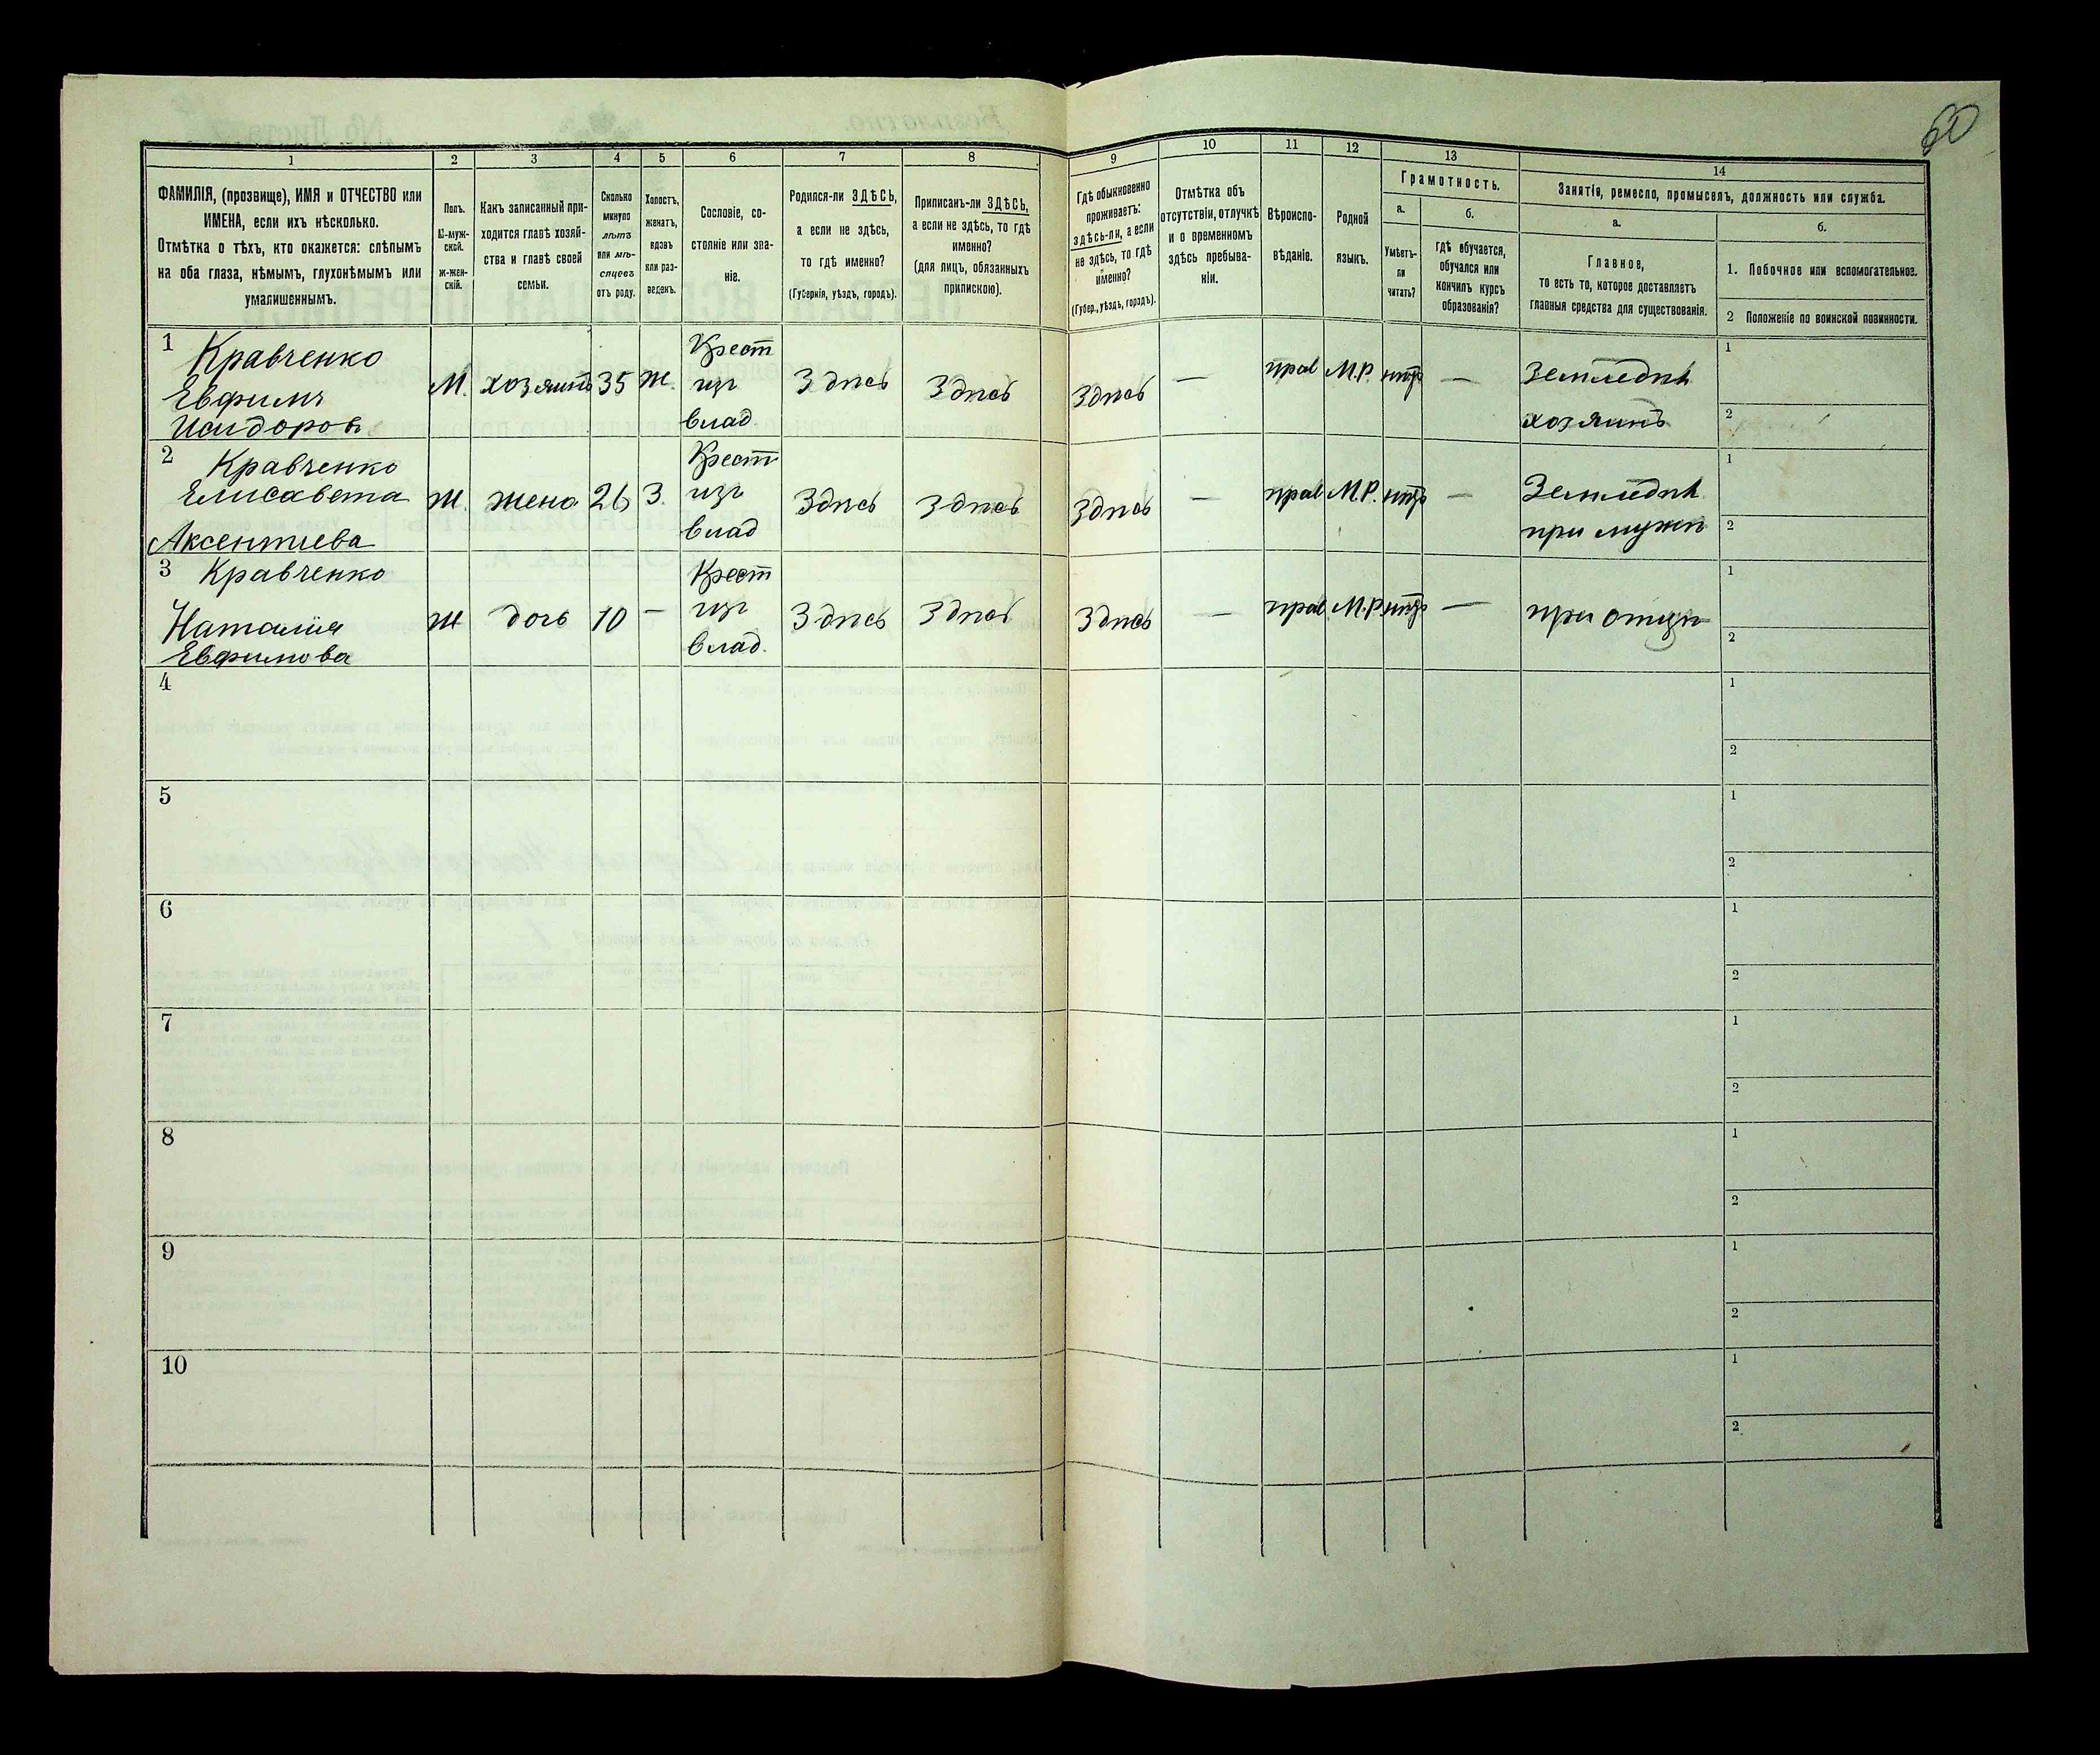 60
1 2 3 4 5 6 7 8 9 10 11 12 13 14
ФАМИЛІЯ, (прозвище), ИМЯ и ОТЧЕСТВО или
ИМЕНА, если ихъ нѣсколько.
Отмѣтка о тѣхъ, кто окажется: слѣпымъ
на оба глаза, нѣмымъ, глухонѣмымъ или
умалишеннымъ.
Полъ.
М-муж-
ской.
ж-жен-
скій.
Какъ записанный при-
ходится главѣ хозяй-
ства и главѣ своей
семьи.
Сколько
минуло
лѣтъ
или мѣ-
сяцевъ
отъ роду.
Холостъ,
женатъ,
вдовъ
или раз-
веденъ.
Сословіе, со-
стояніе или зва-
ніе.
Родился-ли ЗДѢСЬ,
а если не здѣсь,
то гдѣ именно?
(Губернія, уѣздъ, городъ).
Приписанъ-ли ЗДѢСЬ,
а если не здѣсь, то гдѣ
именно?
(для лицъ, обязанныхъ
припискою).
Гдѣ обыкновенно
проживаетъ:
здѣсь-ли, а если
не здѣсь, то гдѣ
именно?
(Губер., уѣздъ, городъ).
Отмѣтка объ
отсутствіи, отлучкѣ
и о временномъ
здѣсь пребыва-
ніи.
Вѣроиспо-
вѣданіе.
Родной
языкъ.
Грамотность.
а.
Умѣетъ-
ли
читать?
б.
Гдѣ обучается,
обучался или
кончилъ курсъ
образованія?
Занятіе, ремесло, промыселъ, должность или служба.
а.
Главное,
то есть то, которое доставляетъ
главныя средства для существованія.
б.
1. Побочное или вспомогательное.
2 Положеніе по воинской повинности.
1 Кравченко
Евфимъ
Исидоровъ
М. хозяинъ 35 ж.
Крест
изъ
влад
Здѣсь Здѣсь Здѣсь — прав М.Р. нѣтъ —
Земледѣл
хозяинъ
1
2
2 Кравченко
Елисавета
Аксентиева
ж. жена 26 З.
Крест
изъ
влад
Здѣсь Здѣсь Здѣсь — прав М.Р. нѣтъ —
Земледѣл
при мужѣ
1
2
3 Кравченко
Наталія
Евфимова
ж дочь 10 —
Крест
изъ
влад.
Здѣсь Здѣсь Здѣсь — прав М.Р. нѣтъ —
при отцѣ
1
2
4
1
2
5
1
2
6
1
2
7
1
2
8
1
2
9
1
2
10
1
2